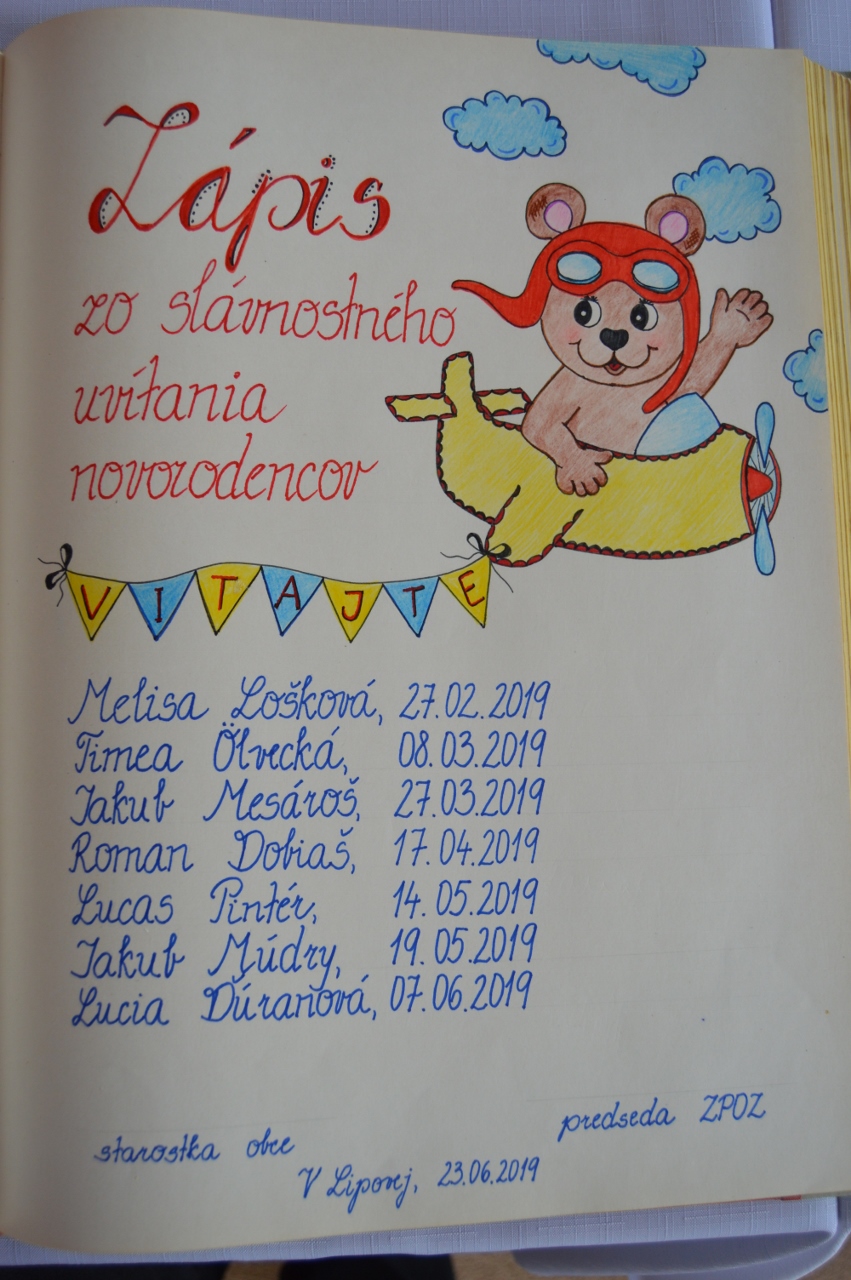 Zápis
zo slávnostného
uvítania
novorodencov
VITAJTE
Melisa Lošková, 27.02.2019
Timea Ölvecká, 08.03.2019
Jakub Mesároš, 27.03.2019
Roman Dobiaš, 17.04.2019
Lucas Pintér, 14.05.2019
Jakub Múdry, 19.05.2019
Lucia Ďúranová, 07.06.2019
predseda ZPOZ
starostka obce
V Lipovej, 23.06.2019